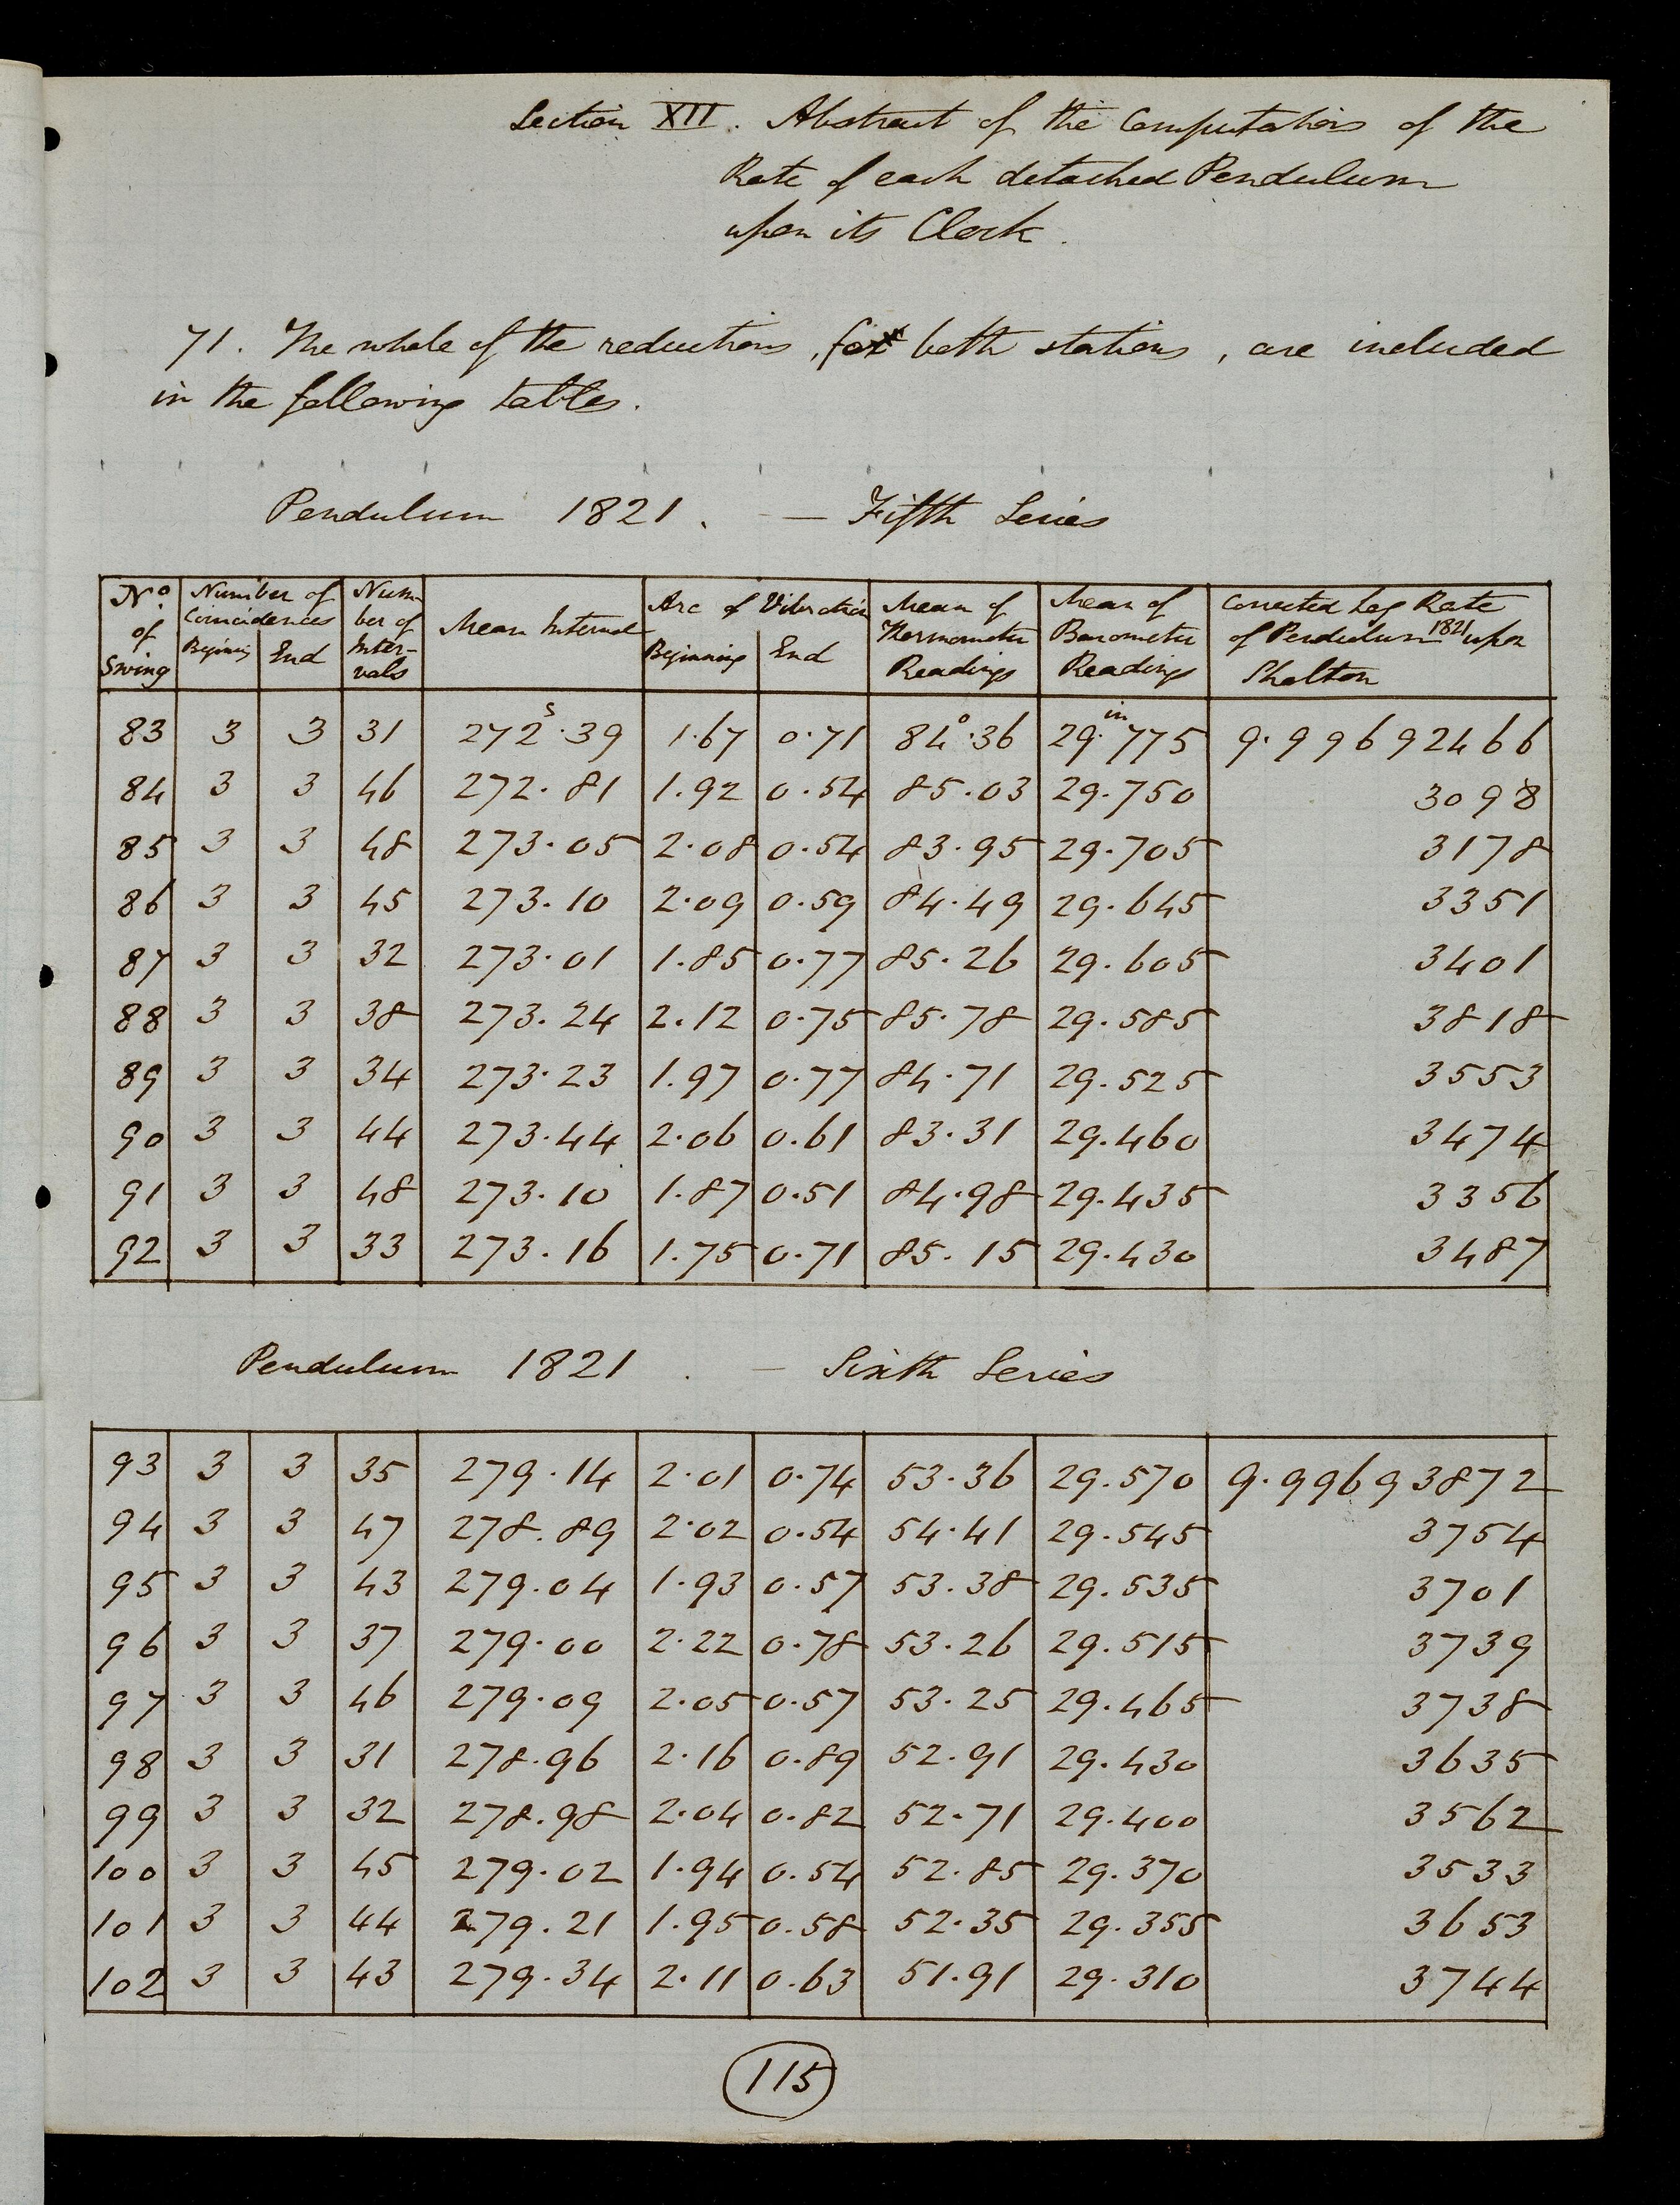 Section XII. Abstract of the Computations of the
Rate of each detached Pendulum
upon its Clock.
71. The whole of the reductions, for both stations, are included
in the following tables.
Pendulum 1821. — Fifth Series
No. of Swing | Number of Coincidences Beginning | End | Number of Inter-vals | Mean Interval | Arc of Vibration Beginning | End | Mean of Thermometer Readings | Mean of Barometer Readings | Corrected Log Rate of Pendulum 1821 upon Shelton
83 3 3 31 272s.39 1.67 0.71 84°.36 29in.775 9.99692466
84 3 3 46 272.81 1.92 0.54 85.03 29.750 3098
85 3 3 48 273.05 2.08 0.54 83.95 29.705 3178
86 3 3 45 273.10 2.09 0.59 84.49 29.645 3351
87 3 3 32 273.01 1.85 0.77 85.26 29.605 3401
88 3 3 38 273.24 2.12 0.75 85.78 29.585 3818
89 3 3 34 273.23 1.97 0.77 84.71 29.525 3553
90 3 3 44 273.44 2.06 0.61 83.31 29.460 3474
91 3 3 48 273.10 1.87 0.51 84.98 29.435 3356
92 3 3 33 273.16 1.75 0.71 85.15 29.430 3487
Pendulum 1821. — Sixth Series
93 3 3 35 279.14 2.01 0.74 53.36 29.570 9.99693872
94 3 3 47 278.89 2.02 0.54 54.41 29.545 3754
95 3 3 43 279.04 1.93 0.57 53.38 29.535 3701
96 3 3 37 279.00 2.22 0.78 53.26 29.515 3739
97 3 3 46 279.09 2.05 0.57 53.25 29.465 3738
98 3 3 31 278.96 2.16 0.89 52.91 29.430 3635
99 3 3 32 278.98 2.04 0.82 52.71 29.400 3562
100 3 3 45 279.02 1.94 0.54 52.85 29.370 3533
101 3 3 44 279.21 1.95 0.58 52.35 29.355 3653
102 3 3 43 279.34 2.11 0.63 51.91 29.310 3744
115